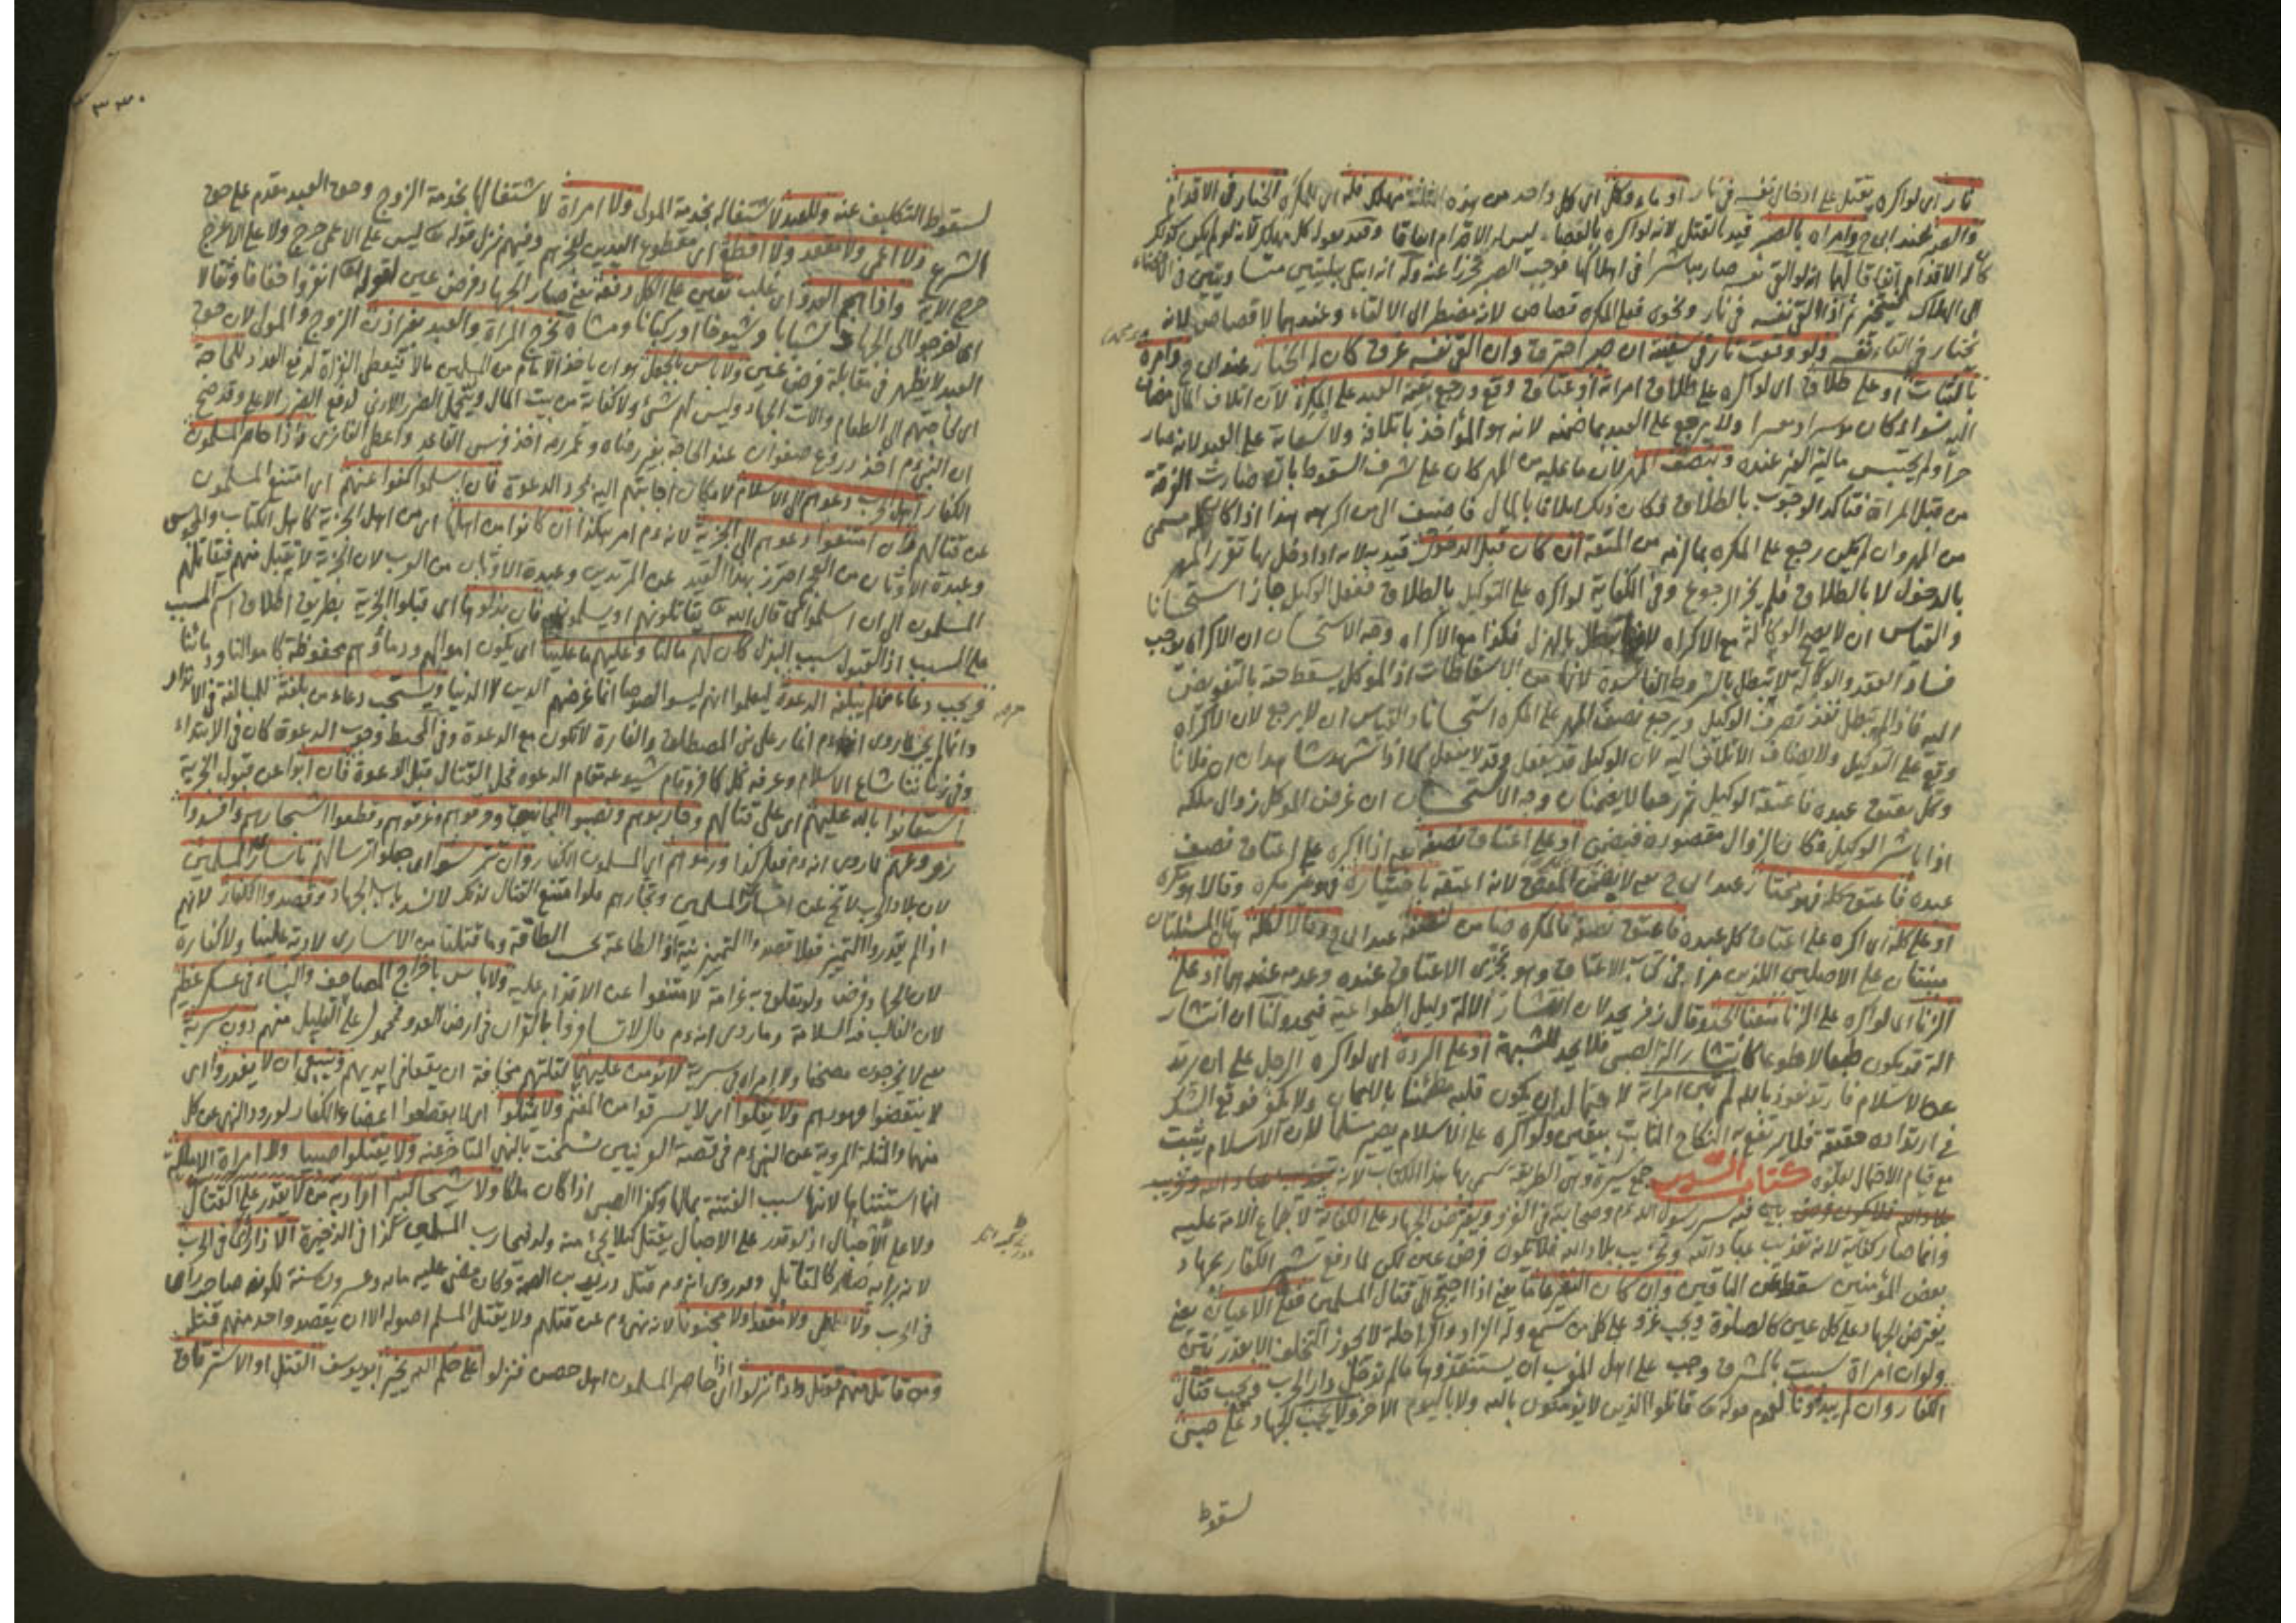 نار اى لو اكره بقتل على ادخال نفسه فى نار او ماء وكل اى كل واحد من هذه الثلثة مهلك فله اى للمكره الخيار فى الاقدام
والصبر عند ابى ح وامراه بالصبر قيد بالقتل لانه لو اكره بالعصاء ليس له الاقدام اتفاقا وقيد بقوله كل مهلك لانه لو لم يكن كذلك
كان له الاقدام اتفاقا لهما انه لو القى نفسه صار مباشرا فى اهلاكها فوجب الصبر تحرزا عنه وله انه ابتلى ببليتين متساويتين فى الافضاء
الى الهلاك فيتخير ثم اذا القى نفسه فى نار ونحوه فعلى المكره قصاص لانه مضطر الى الالقاء وعندهما لا قصاص لانه
مختار فى القاء نفسه ولو وقعت نار فى سفينة ان صبر احترق وان القى نفسه غرق كان له الخيار عند ابى ح وامره
بالثبات او على طلاق اى لو اكره على طلاق امراته او عتاق وقع ورجع بقيمة العبد على المكره لان اتلاف المال مضاف
اليه سواء كان موسرا او معسرا ولا يرجع على العبد بما ضمنه لانه هو المؤاخذ باتلافه ولا سعاية على العبد لانه صار
حرا ولم يحتبس مالية الغير عنده وبنصف المهر لان ما عليه من المهر كان على شرف السقوط بان صارت الفرقة
من قبل المراة فتاكد الوجوب بالطلاق فكان ذلك اتلافا بالمال فاضيف الى من اكرهه هذا اذا كان مسمى
من المهر وان لم يكن رجع على المكره بما لزمه من المتعة ان كان قبل الدخول قيد به لانه اذا دخل بها تقرر المهر
بالدخول لا بالطلاق فلم يجز الرجوع وفى الكفاية لو اكره على التوكيل بالطلاق ففعل الوكيل جاز استحسانا
والقياس ان لا يصح الوكالة مع الاكراه لانها تبطل بالهزل فكذا مع الاكراه وجه الاستحسان ان الاكراه يوجب
فساد العقد والوكالة لا تبطل بالشروط الفاسدة لانها من الاسقاطات اذ الموكل يسقط حقه بالتفويض
اليه فاذا لم تبطل نفذ تصرف الوكيل ويرجع نصف المهر على المكره استحسانا والقياس ان لا يرجع لان الاكراه
وقع على التوكيل ولا يضاف الاتلاف اليه لان الوكيل قد يفعل وقد لا يفعل كما اذا شهد شاهدان ان فلانا
وكل بعتق عبده فاعتقه الوكيل ثم رجعا لا يضمنان وجه الاستحسان ان غرض الموكل زوال ملكه
اذا باشر الوكيل فكان الزوال مقصوده فيضمن او على اعتاق نصفه يعنى اذا اكره على اعتاق نصف
عبده فاعتق كله فهو مختار عند ابى ح يعنى لا يضمن المكره لانه اعتقه باختياره فهو غير مكره وقالا هو مكره
او على كله اى اكره على اعتاق كل عبده فاعتق نصفه فالمكره ضامن لنصفه عند ابى ح وقالا لكله هاتان المسئلتان
مبنيتان على الاصلين اللذين مرا فى كتاب الاعتاق وهو تجزى الاعتاق عنده وعدمه عندهما او على
الزنا اى لو اكره على الزنا منعنا الحد وقال زفر يحد لان انتشار الالة دليل الطواعية فيحد ولنا ان انتشار
الة قد يكون طبعا لا طوعا كانتشار الة الصبى فلا يحد للشبهة او على الردة اى لو اكره الرجل على ان يرتد
عن الاسلام فارتد نعوذ بالله لم تبن امراته لاحتمال ان يكون قلبه مطمئنا بالايمان ولا يكفر فوقع الشك
فى ارتداده حقيقة فلا يرتفع به النكاح الثابت بيقين ولو اكره على الاسلام يصير مسلما لان الاسلام يثبت
مع قيام الاحتمال لعلوه كتاب السير جمع سيرة وهى الطريقة سمى بها هذا الكتاب لانه
بين فيه سير رسول الله ءم وصحابته فى الغزو ويفترض الجهاد على الكفاية لاجماع الامة عليه
وانما صار كفاية لانه تعذيب عباد الله وتخريب بلاد الله فلا يكون فرض عين لكن لما دفع شر الكفار بجهاد
بعض المؤمنين سقط عن الباقين وان كان النفير عاما يعنى اذا احتيج الى قتال المسلمين فعلى الاعيان يعنى
يفترض الجهاد على كل عين كالصلوة ويجب غزو على كل من سمع وله الزاد والراحلة لا يجوز التخلف الا بعذر بين
ولو ان امراة سبيت بالمشرق وجب على اهل المغرب ان يستنقذوها ما لم تدخل دار الحرب ويجب قتال
الكفار وان لم يبدؤنا لعموم قوله تعا قاتلوا الذين لا يؤمنون بالله ولا باليوم الاخر ولا يجب الجهاد على صبى
سقوط
٣٣٠
لسقوط التكليف عنه وللعبد لاشتغاله بخدمة المولى ولا امراة لاشتغالها بخدمة الزوج وحق العبد مقدم على حق
الشرع ولا اعمى ولا مقعد ولا اقطع اى مقطوع اليدين لعجزهم وفيهم نزل قوله تعا ليس على الاعمى حرج ولا على الاعرج
حرج الاية واذا هجم العدو اى غلب تعين على الكل دفعه يعنى صار الجهاد فرض عين لقوله تعا انفروا خفافا وثقالا
اى اخرجوا الى الجهاد شبابا وشيوخا او ركبانا ومشاة تخرج المراة والعبد بغير اذن الزوج والمولى لان حق
العبد لا يظهر فى مقابلة فرض عين ولا باس بالجعل هو ان ياخذ الامام من المسلمين مالا فيعطى الغزاة لدفع العدو للحاجة
اى لحاجتهم الى الطعام والات الجهاد وليس لهم شئ ولا كفاية من بيت المال ويتحمل الضرر الادنى لدفع الضرر الاعلى وقد صح
ان النبى ءم اخذ دروع صفوان عند الحاجة بغير رضاه وعمر رضه اخذ فرس القاعد واعطى الغازى فاذا حاصر المسلمون
الكفار اهل حرب دعوهم الى الاسلام لامكان اجابتهم اليه بمجرد الدعوة فان اسلموا كفوا عنهم اى امتنع المسلمون
عن قتالهم فان امتنعوا دعوهم الى الجزية لانه ءم امر هكذا ان كانوا من اهلها اى من اهل الجزية كاهل الكتاب والمجوس
وعبدة الاوثان من العجم احترز بهذا القيد عن المرتدين وعبدة الاوثان من العرب لان الجزية لا تقبل منهم فيقاتلهم
المسلمون الى ان اسلموا كما قال الله تعا يقاتلونهم او يسلمون فان بذلوها اى قبلوا الجزية بطريق اطلاق اسم المسبب
على السبب اذ القبول سبب البذل كان لهم مالنا وعليهم ما علينا اى يكون اموالهم ودماؤهم محفوظة كاموالنا ودمائنا
ويجب دعاء من لم يبلغه الدعوة ليعلموا انهم ليسوا لصوصا انما غرضهم الدين لا الدنيا ويستحب دعاء من بلغته للمبالغة فى الانذار
وانما لم يجب لما روى انه ءم اغار على بنى المصطلق والغارة لا تكون مع الدعوة وفى المحيط وجوب الدعوة كان فى الابتداء
وفى زماننا شاع الاسلام وعرفه كل كافر وقام شيوعه مقام الدعوة فحل القتال قبل الدعوة فان ابوا عن قبول الجزية
استعانوا بالله عليهم اى على قتالهم وحاربوهم ونصبوا المجانيق وحرقوهم وغرقوهم وقطعوا اشجارهم وافسدوا
زروعهم لما روى انه ءم فعل كذا ورموهم اى المسلمون الكفار وان تترسوا اى جعلوا ترسالهم باسارى المسلمين
لان بلاد الحرب لا تخ عن اسارى المسلمين وتجارهم فلو امتنع القتال لذلك لانسد باب الجهاد وقصدوا الكفار لانهم
اذا لم يقدروا التميز فعلا قصدوا التميز نية اذ الطاعة بحسب الطاقة وما قتلنا من الاسارى لا دية علينا ولا كفارة
لان الجهاد فرض ولو تعلق به غرامة لامتنعوا عن الاقدام عليه ولا باس باخراج المصاحف والنساء فى عسكر عظيم
لان الغالب فيه السلامة وما روى انه ءم قال لا تسافروا بالقران فى ارض العدو محمول على القليل منهم دون سرية
يعنى لا يخرجون مصحفا ولا امراة فى سرية لا يؤمن عليهما لقلتهم مخافة ان يقعا فى ايديهم وينبغى ان لا يغدروا اى
لا ينقضوا عهودهم ولا يغلوا اى لا يسرقوا من المغنم ولا يمثلوا اى لا يقطعوا اعضاء الكفار لورود النهى عن كل
منها والمثلة المروية عن النبى ءم فى قصة العرنيين نسخت بالنهى المتاخر عنه ولا يقتلوا صبيا ولا امراة الا ملكة
انما استثناها لانها سبب الفتنة بمالها وكذا الصبى اذا كان ملكا ولا شيخا كبيرا اراد به من لا يقدر على القتال
ولا على الاحبال اذ لو قدر على الاحبال يقتل لئلا يجئ منه ولد فيحارب المسلمين كذا فى الذخيرة الا ذا راى فى الحرب
لانه برايه صار كالمقاتل وقد روى انه ءم قتل دريد بن الصمة وكان مضى عليه مائة وعشرون سنة لكونه صاحب راى
فى الحرب ولا اعمى ولا مقعدا ولا مجنونا لانه نهى ءم عن قتلهم ولا يقتل المسلم اصوله الا ان يقصد واحد منهم قتله
ومن قاتل منهم قوتل واذا نزلوا اى اذا حاصر المسلمون اهل حصن فنزلوا على حكم الله يخير ابو يوسف القتل او الاسترقاق